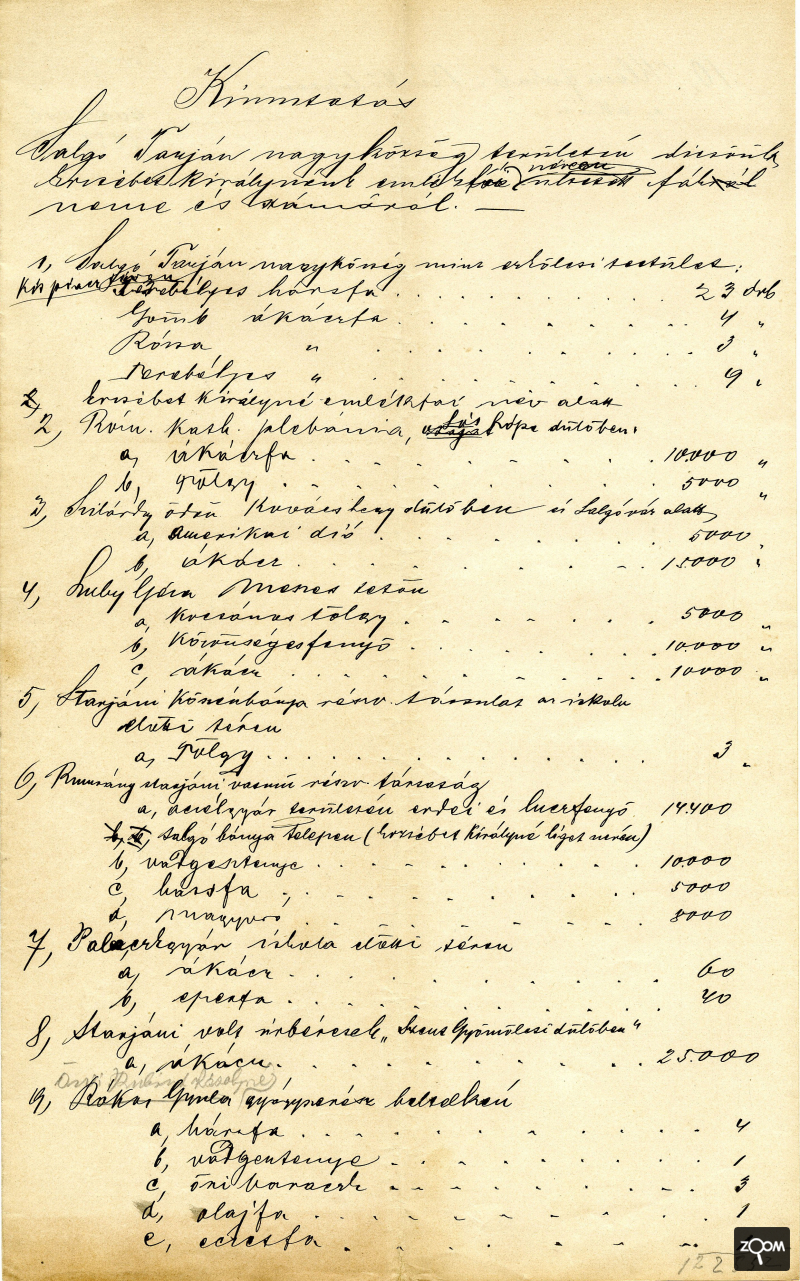 Kimutatás
Salgó Tarján nagyközség területén dicsőült
Erzsébet királynénk emlékfái néven ültetett fák
neme és számáról. —
1, Salgó Tarján nagyközség mint erkölcsi testület:
Kis piacz téren Terebélyes hársfa . . . 23 drb
Gömb ákáczfa . . . 4 "
Rózsa " . . . 3 "
Terebélyes " . . . 9 "
Erzsébet királyné emlékfái név alatt
2, Róm. kath. plebánia, Sós hópe dülőben:
a, ákáczfa . . . 10000 "
b, tölgy . . . 5000 "
3, Szilárdy Ödön Kovácshegy dülőben és Salgóvár alatt
a, amerikai dió . . . 5000 "
b, ákácz . . . 15000 "
4, Luby Géza Meszes tetőn
a, kocsános tölgy . . . 5000 "
b, Közönségesfenyő . . . 10000 "
c, ákácz . . . 10000 "
5, Starjáni Kőszénbánya részv. társulat az iskola
előtti téren
a, Tölgy . . . 3 "
6, Rimamurány starjáni vasmű részv. társaság
a, aczélgyár területén erdei és luczfenyő 14.400
b, Salgó bánya telepen (Erzsébet királyné liget nevén)
b, vadgesztenye . . . 10.000
c, hársfa . . . 5000
d, magyaró . . . 8000
7, Palaczkgyár iskola előtti téren
a, ákácz . . . 60
b, eperfa . . . 40
8, Starjáni volt úrbéresek „ Gyömölcsi dülőben"
a, ákácz . . . 25.000
9, Gyula gyógyszerész beltelkén
a, hársfa . . . 4
b, vadgesztenye . . . 1
c, őszi baraczk . . . 3
d, olajfa . . . 1
e, eczetfa
ZOOM